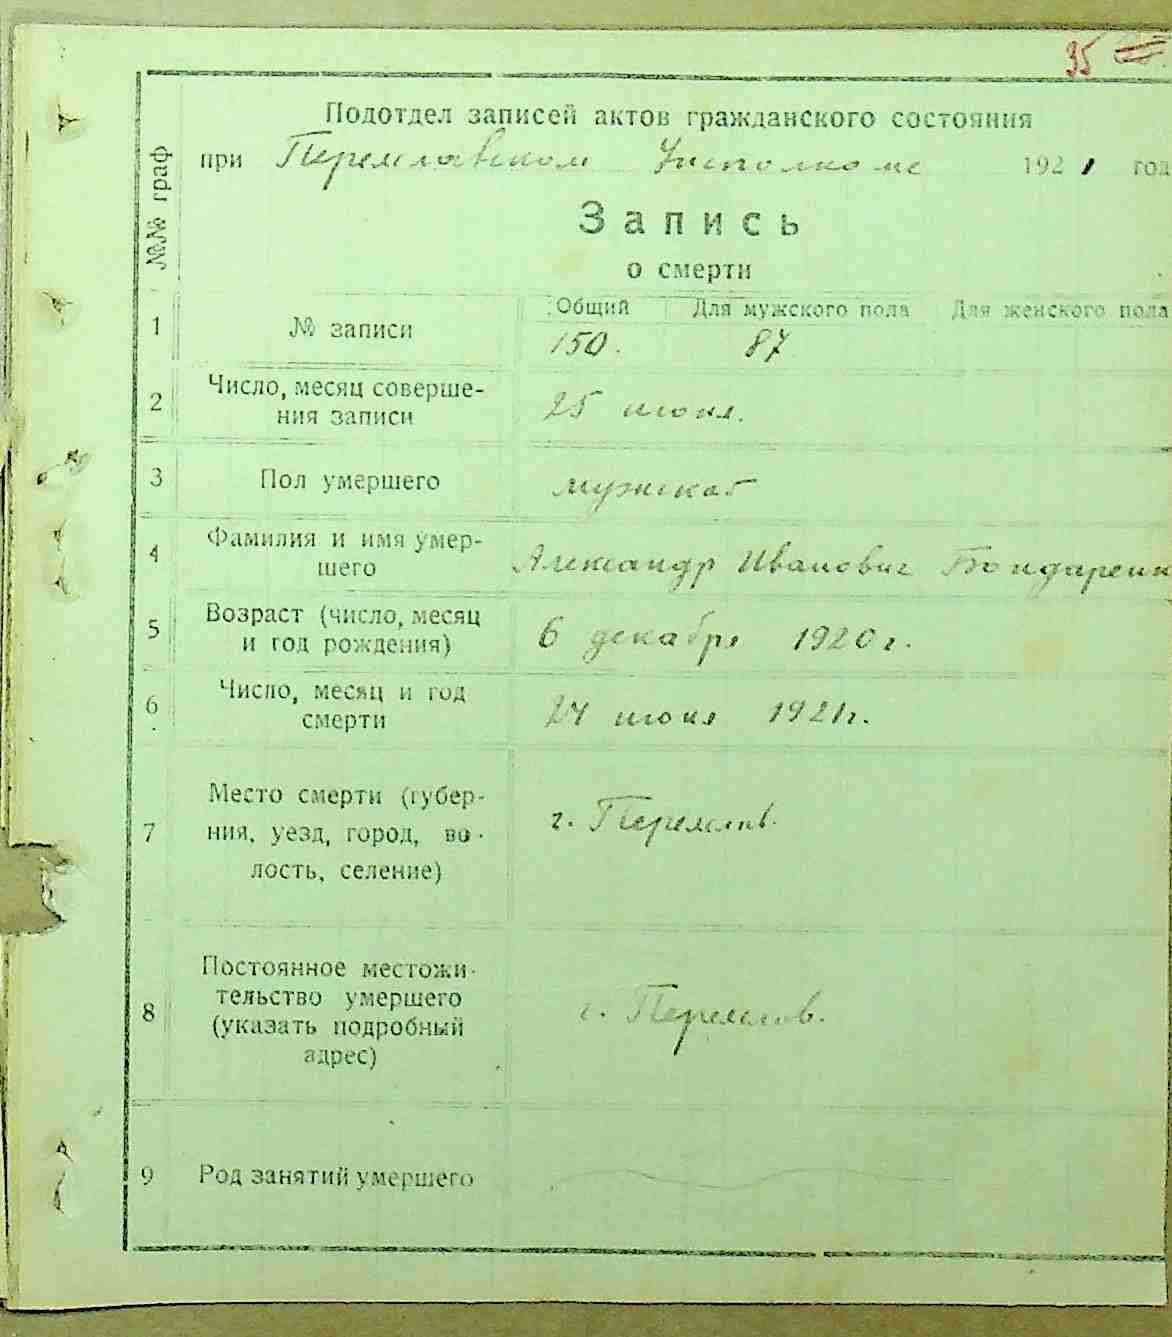 35
Подотдел записей актов гражданского состояния
при Переяславском Исполкоме 1921 год
№№ граф
Запись
о смерти
Общий Для мужского пола Для женского пола
1 № записи 150. 87
2 Число, месяц соверше-
ния записи 25 июня.
3 Пол умершего мужской
4 Фамилия и имя умер-
шего Александр Иванович Бондаренк
5 Возраст (число, месяц
и год рождения) 6 декабря 1920 г.
6 Число, месяц и год
смерти 24 июня 1921 г.
7 Место смерти (губер-
ния, уезд, город, во-
лость, селение) г. Переяслав.
8 Постоянное местожи-
тельство умершего
(указать подробный
адрес) г. Переяслав.
9 Род занятий умершего